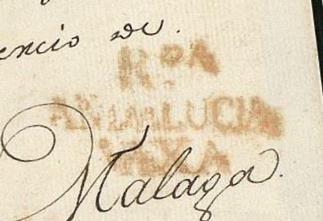 encio de.
R.ᵒᴬ
ANDALUCIA
BAXA
Malaga.